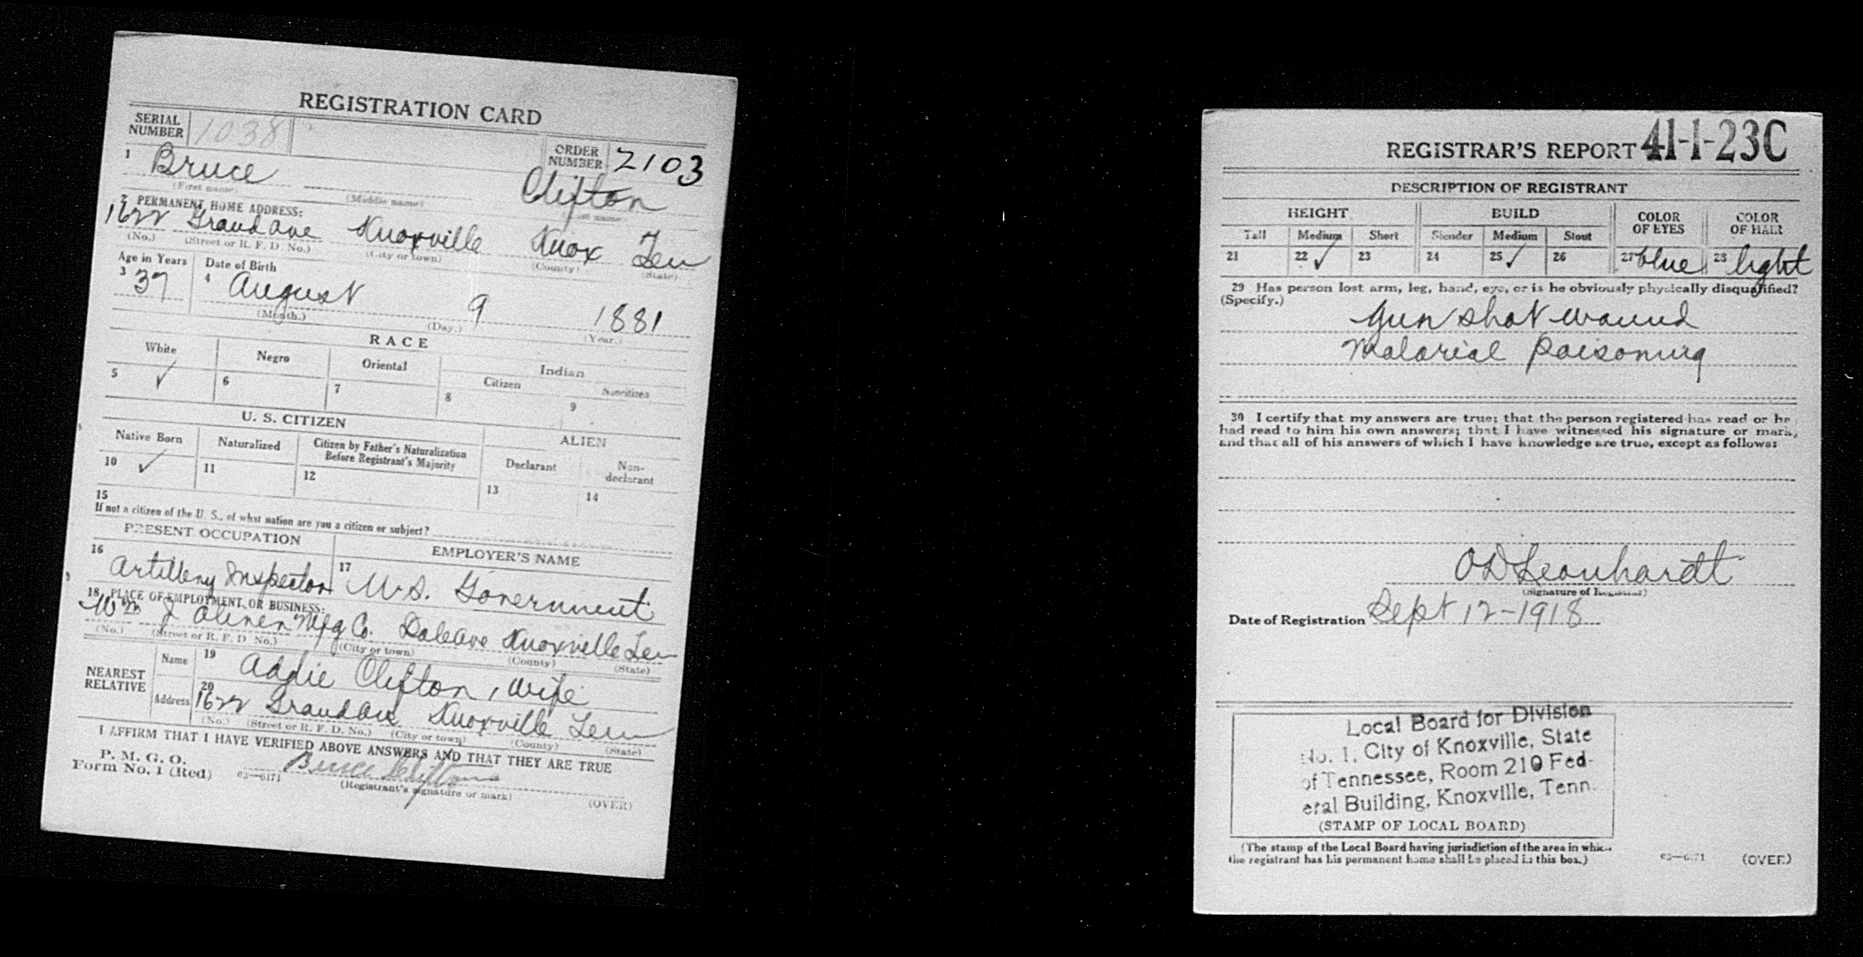 REGISTRATION CARD
SERIAL NUMBER 1038
ORDER NUMBER 2103
1 Bruce Clifton
(First name) (Middle name) Last name
2 PERMANENT HOME ADDRESS:
1622 Grand Ave Knoxville Knox Ten
(No.) (Street or R. F. D. No.) (City or town) (County) (State)
Age in Years Date of Birth
3 37 4 August 9 1881
(Month.) (Day.) (Year.)
RACE
White Negro Oriental Indian
Citizen Noncitizen
5 ✓ 6 7 8 9
U. S. CITIZEN ALIEN
Native Born Naturalized Citizen by Father's Naturalization Before Registrant's Majority Declarant Non-declarant
10 ✓ 11 12 13 14
15
If not a citizen of the U. S., of what nation are you a citizen or subject?
PRESENT OCCUPATION EMPLOYER'S NAME
16 Artillery Inspector 17 U.S. Government
18 PLACE OF EMPLOYMENT OR BUSINESS:
Wm J Oliver Mfg Co. Dale Ave Knoxville Ten
(No.) (Street or R. F. D. No.) (City or town) (County) (State)
NEAREST RELATIVE Name 19 Addie Clifton, wife
Address 20 1622 Grand Ave Knoxville Ten
(No.) (Street or R. F. D. No.) (City or town) (County) (State)
I AFFIRM THAT I HAVE VERIFIED ABOVE ANSWERS AND THAT THEY ARE TRUE
P. M. G. O.
Form No. 1 (Red) 03—6171 Bruce Clifton
(Registrant's signature or mark) (OVER)
REGISTRAR'S REPORT 41-1-23C
DESCRIPTION OF REGISTRANT
HEIGHT BUILD COLOR OF EYES COLOR OF HAIR
Tall Medium Short Slender Medium Stout
21 22 ✓ 23 24 25 ✓ 26 27 blue 28 light
29 Has person lost arm, leg, hand, eye, or is he obviously physically disqualified?
(Specify.)
Gun shot wound
Malarial Poisoning
30 I certify that my answers are true; that the person registered has read or has
had read to him his own answers; that I have witnessed his signature or mark,
and that all of his answers of which I have knowledge are true, except as follows:
O D Leonhardt
(Signature of Registrar)
Date of Registration Sept 12-1918
Local Board for Division
No. 1, City of Knoxville, State
of Tennessee, Room 210 Fed-
eral Building, Knoxville, Tenn.
(STAMP OF LOCAL BOARD)
(The stamp of the Local Board having jurisdiction of the area in which
the registrant has his permanent home shall be placed in this box.)
03—6171 (OVER)